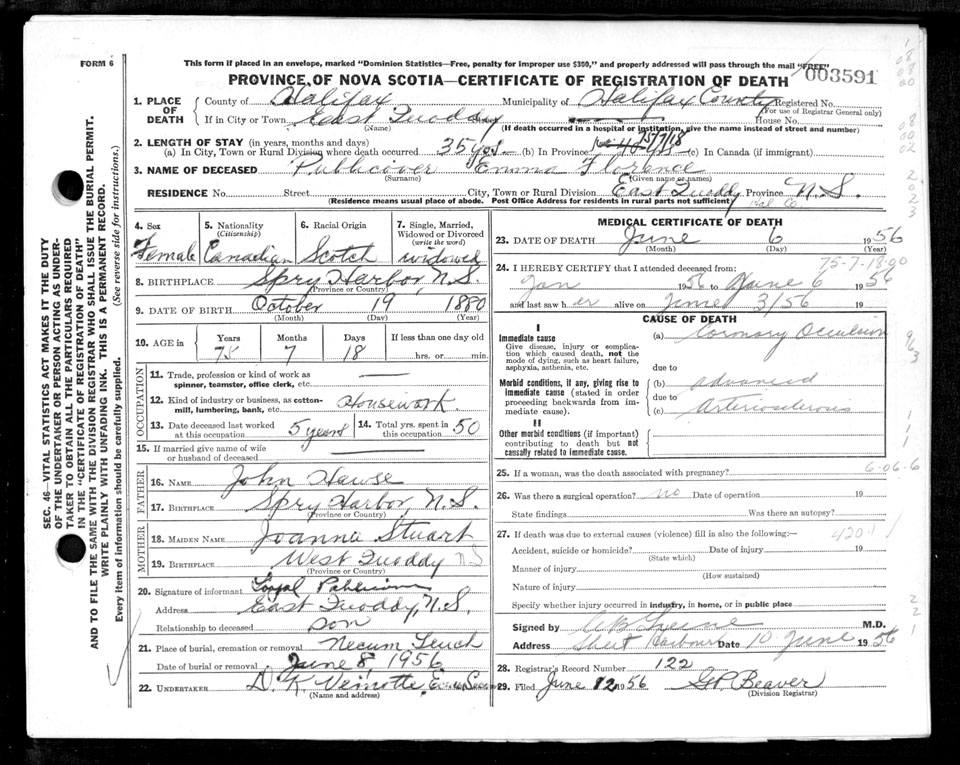 FORM 6
This form if placed in an envelope, marked "Dominion Statistics—Free, penalty for improper use $300," and properly addressed will pass through the mail "FREE"
PROVINCE OF NOVA SCOTIA—CERTIFICATE OF REGISTRATION OF DEATH
003591
1. PLACE OF DEATH
County of Halifax Municipality of Halifax County Registered No.
(For use of Registrar General only)
If in City or Town East Quoddy House No.
(Name) (If death occurred in a hospital or institution, give the name instead of street and number)
2. LENGTH OF STAY (in years, months and days)
(a) In City, Town or Rural Division where death occurred 35 yrs. (b) In Province 75/7/18 (c) In Canada (if immigrant)
3. NAME OF DECEASED Publicover Emma Florence
(Surname) (Given name or names)
RESIDENCE No. Street City, Town or Rural Division East Quoddy Province N.S.
(Residence means usual place of abode. Post Office Address for residents in rural parts not sufficient) Hal Co
4. Sex Female
5. Nationality (Citizenship) Canadian
6. Racial Origin Scotch
7. Single, Married, Widowed or Divorced (write the word) widowed
8. BIRTHPLACE Spry Harbor, N.S.
(Province or Country)
9. DATE OF BIRTH October 19 1880
(Month) (Day) (Year)
10. AGE in Years Months Days If less than one day old
75 7 18 hrs. or min.
OCCUPATION
11. Trade, profession or kind of work as spinner, teamster, office clerk, etc.
12. Kind of industry or business, as cotton-mill, lumbering, bank, etc. Housework.
13. Date deceased last worked at this occupation 5 years
14. Total yrs. spent in this occupation 50
15. If married give name of wife or husband of deceased
FATHER
16. NAME John Hawse
17. BIRTHPLACE Spry Harbor, N.S.
(Province or Country)
MOTHER
18. MAIDEN NAME Joanna Stuart
19. BIRTHPLACE West Quoddy NS
(Province or Country)
20. Signature of informant Loyal
Address East Quoddy, N.S.
Relationship to deceased son
21. Place of burial, cremation or removal Necum Teuch
Date of burial or removal June 8, 1956
22. UNDERTAKER D. K. Veinotte,
(Name and address)
MEDICAL CERTIFICATE OF DEATH
23. DATE OF DEATH June 6 1956
(Month) (Day)
75-7-18-00
24. I HEREBY CERTIFY that I attended deceased from
Jan 1956 to June 6 1956
and last saw her alive on June 3/56 19
CAUSE OF DEATH
I
Immediate cause
Give disease, injury or complication which caused death, not the mode of dying, such as heart failure, asphyxia, asthenia, etc.
(a) Coronary Occulsion
due to
Morbid conditions, if any, giving rise to immediate cause (stated in order proceeding backwards from immediate cause).
(b) advanced
due to
(c) Arteriosclerosis
II
Other morbid conditions (if important) contributing to death but not causally related to immediate cause.
25. If a woman, was the death associated with pregnancy?
6-06-6
26. Was there a surgical operation? no Date of operation 19
State findings Was there an autopsy?
27. If death was due to external causes (violence) fill in also the following:—
420.1
Accident, suicide or homicide? Date of injury 19
(State which)
Manner of injury
(How sustained)
Nature of injury
Specify whether injury occurred in industry, in home, or in public place
Signed by M.D.
Address Sheet Harbour Date 10 June 1956
28. Registrar's Record Number 122
29. Filed June 12 1956 G.P. Beaver
(Division Registrar)
SEC. 46—VITAL STATISTICS ACT MAKES IT THE DUTY
OF THE UNDERTAKER OR PERSON ACTING AS UNDER-
TAKER TO OBTAIN ALL THE PARTICULARS REQUIRED
IN THE "CERTIFICATE OF REGISTRATION OF DEATH"
AND TO FILE THE SAME WITH THE DIVISION REGISTRAR WHO SHALL ISSUE THE BURIAL PERMIT.
WRITE PLAINLY WITH UNFADING INK. THIS IS A PERMANENT RECORD.
Every item of information should be carefully supplied. (See reverse side for instructions.)